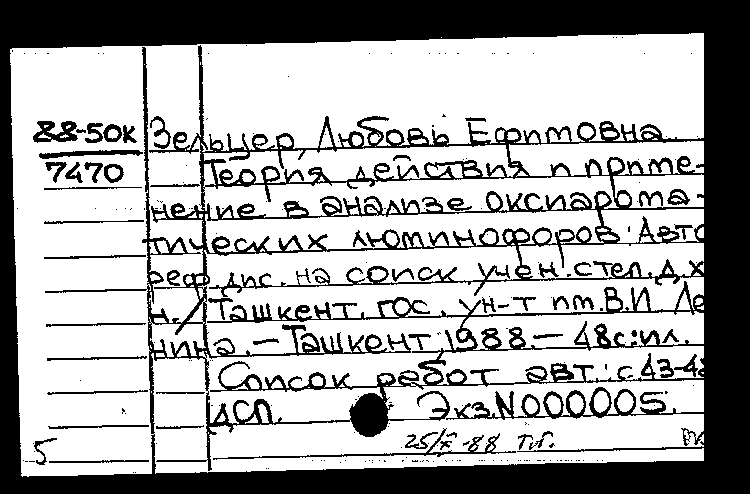 88-50к Зельцер, Любовь Ефимовна
7470 Теория действия и приме-
нение в анализе оксиарома-
тических люминофоров: Авто
реф. дис. на соиск. учен. степ. д. х
н. / Ташкент. гос. ун-т им. В.И. Ле
нина. — Ташкент, 1988. — 48 с: ил.
Список работ авт.: с. 43-48
ДСП. Экз. N000005.
5 25/X-88 Т.Г.